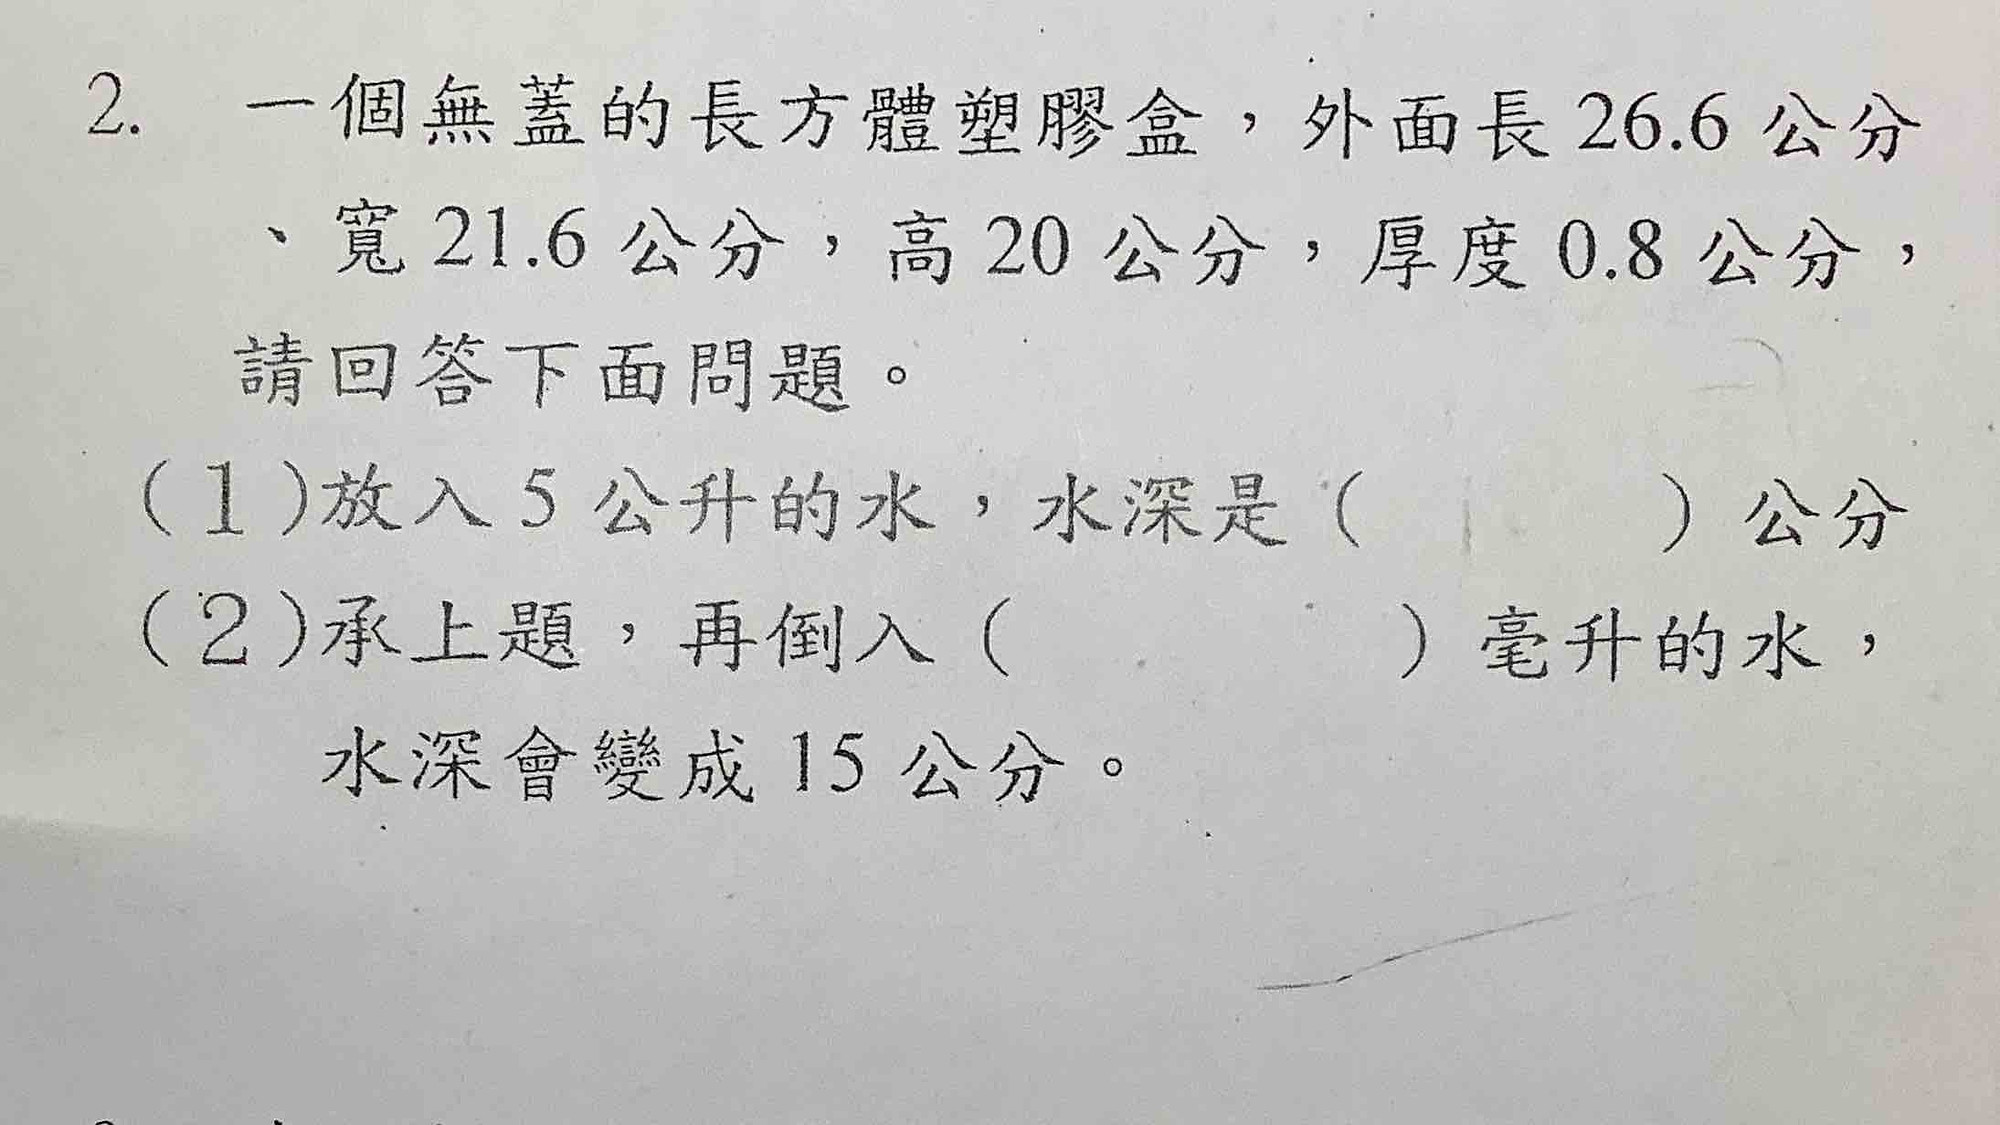 2. 一個無蓋的長方體塑膠盒，外面長 26.6 公分
、寬 21.6 公分，高 20 公分，厚度 0.8 公分，
請回答下面問題。
(1)放入 5 公升的水，水深是（ ）公分
(2)承上題，再倒入（ ）毫升的水，
水深會變成 15 公分。